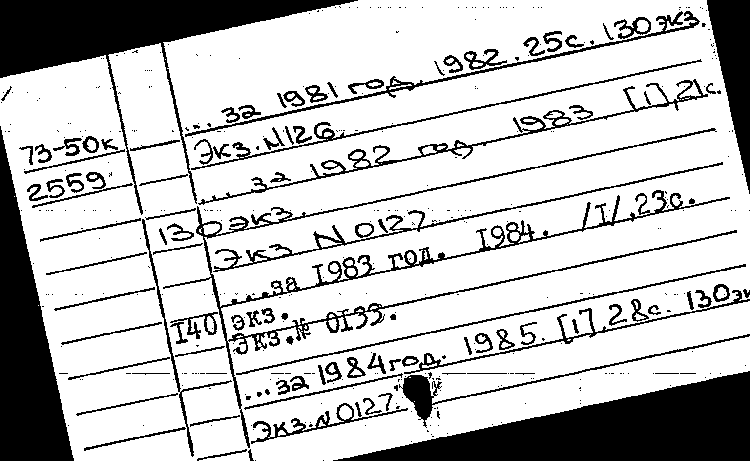 ... за 1981 год. 1982. 25с. 130 экз.
73-50к
Экз. N126.
2559
... за 1982 год. 1983. [1], 21с.
130 экз.
Экз N 0127
...за 1983 год. 1984. /I/,23с.
140 экз.
Экз.№ 0133.
...за 1984 год. 1985. [1], 28с. 130 эк
Экз. N 0127.